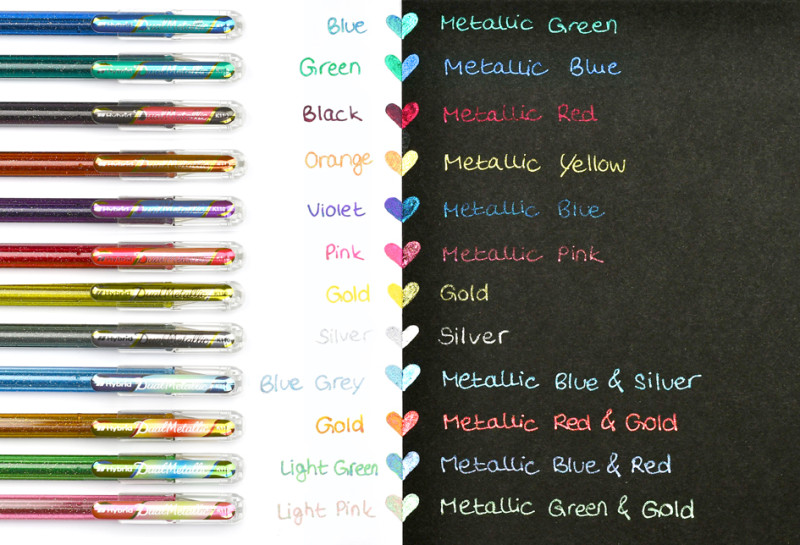 Blue Metallic Green
Green Metallic Blue
Black Metallic Red
Orange Metallic Yellow
Violet Metallic Blue
Pink Metallic Pink
Gold Gold
Silver Silver
Hybrid DualMetallic Blue Grey Metallic Blue & Silver
Hybrid DualMetallic Gold Metallic Red & Gold
Hybrid DualMetallic Light Green Metallic Blue & Red
Hybrid DualMetallic Light Pink Metallic Green & Gold